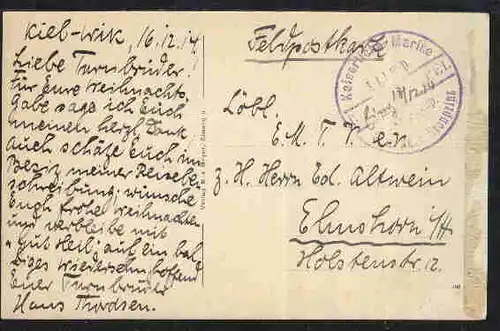 Kiel-Wik, 16.12.14
Liebe Turnbrüder!
Für Eure Weihnachts
Gabe sage ich Euch
meinen herzl. Dank
auch Euch im
Besitz meiner Reisebe
schreibung; wünsche
Euch frohe Weihnachten
und verbleibe mit
"gut Heil" auf ein bal
diges Wiedersehn hoffend
Euer Turnbruder
Hans Thodsen.
Feldpostkarte
Kaiserliche Marine
Löbl.
E. M. T. V.
z. H. Herrn Ed. Altwein
Elmshorn i/H
Holstenstr. 12.